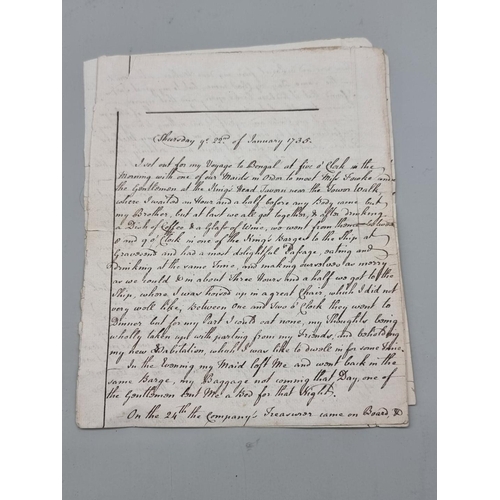 Thursday ye. 22nd. of January 1735.
I set out for my Voyage to Bengal at five o'Clock in the
Morning with one of our Maids in Order to meet Miss Fowke and
the Gentlemen at the King's Head Tavern near the Tower Walk,
where I waited an Hour and a half before any Body came but
my Brother, but at last we all got together, & after drinking
a Dish of Coffee & a Glass of Wine, we went from thence between
8 and 9 o'Clock in one of the King's Barges to the Ship at
Gravesend and had a most delightful Passage, eating and
drinking at the same Time, and making ourselves as merry
as we could & in about Three Hours and a half we got to the
Ship, where I was hoised up in a great Chair, which I did not
very well like, Between One and Two o'Clock they went to
Dinner but for my Part I could eat none, my Thoughts being
wholly taken up with parting from my Friends, and
my new Habitation, which I was like to dwell in for some Time.
In the Evening my Maid left Me and went back in the
same Barge, my Baggage not coming that Day, one of
the Gentlemen lent Me a Bed for that Night.
On the 24th the Company's Treasurer came on Board &